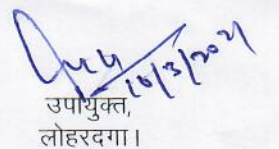 10/3/2021
उपायुक्त,
लोहरदगा।